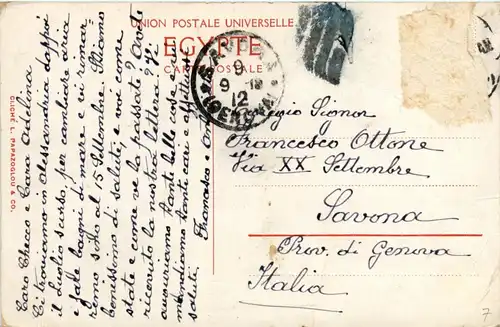 UNION POSTALE UNIVERSELLE.
EGYPTE
CARTE POSTALE
CLICHÉ L. PAPAZOGLOU & CO.
9
9 12
Caro Checco e Cara Adelina
Ci troviamo in Alessandria doppoi
il Luglio scorso, per cambiare aria
e fale bagni di mare e ci rimar
remo sino al 15 Settembre. Stiamo
benissimo di salute, e voi come
state e come ve la passate? Avete
ricevuto la nostra lettera?
auguriamo tante belle cose e vi
mandiamo tanti cari e affet
saluti.
Francesco e
Egregio Signor
Francesco Ottone
Via XX Settembre
Savona
Prov. di Genova
Italia
7